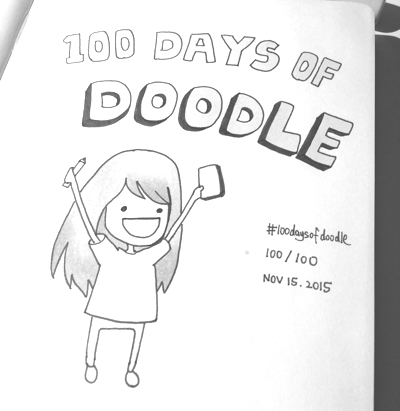 100 DAYS OF
DOODLE
#100daysofdoodle
100/100
NOV 15.2015